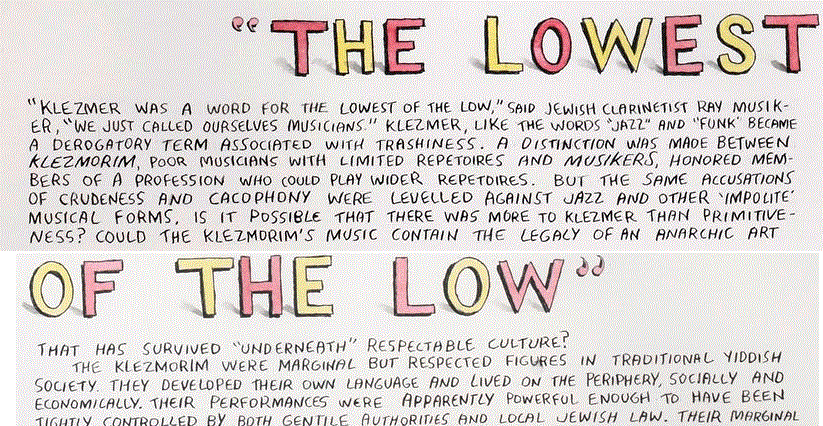 “THE LOWEST
“KLEZMER WAS A WORD FOR THE LOWEST OF THE LOW,” SAID JEWISH CLARINETIST RAY MUSIK-
ER, “WE JUST CALLED OURSELVES MUSICIANS.” KLEZMER, LIKE THE WORDS “JAZZ” AND “FUNK” BECAME
A DEROGATORY TERM ASSOCIATED WITH TRASHINESS. A DISTINCTION WAS MADE BETWEEN
KLEZMORIM, POOR MUSICIANS WITH LIMITED REPETOIRES AND MUSIKERS, HONORED MEM-
BERS OF A PROFESSION WHO COULD PLAY WIDER REPETOIRES. BUT THE SAME ACCUSATIONS
OF CRUDENESS AND CACOPHONY WERE LEVELLED AGAINST JAZZ AND OTHER ‘IMPOLITE’
MUSICAL FORMS. IS IT POSSIBLE THAT THERE WAS MORE TO KLEZMER THAN PRIMITIVE-
NESS? COULD THE KLEZMORIM'S MUSIC CONTAIN THE LEGACY OF AN ANARCHIC ART
OF THE LOW”
THAT HAS SURVIVED “UNDERNEATH” RESPECTABLE CULTURE?
THE KLEZMORIM WERE MARGINAL BUT RESPECTED FIGURES IN TRADITIONAL YIDDISH
SOCIETY. THEY DEVELOPED THEIR OWN LANGUAGE AND LIVED ON THE PERIPHERY, SOCIALLY AND
ECONOMICALLY. THEIR PERFORMANCES WERE APPARENTLY POWERFUL ENOUGH TO HAVE BEEN
TIGHTLY CONTROLLED BY BOTH GENTILE AUTHORITIES AND LOCAL JEWISH LAW. THEIR MARGINAL